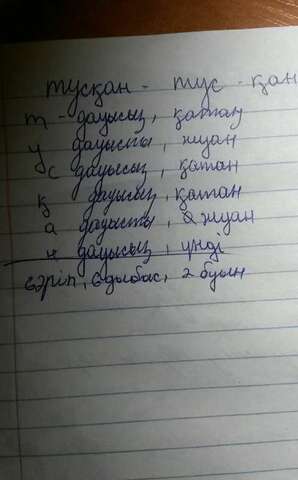 тусқан - тус - қан
т - дауысыз, қатаң
у дауысты, жуан
с дауысыз, қатаң
қ дауысыз, қатаң
а дауысты, жуан
н дауысыз, үнді
6 әріп, 6 дыбыс, 2 буын